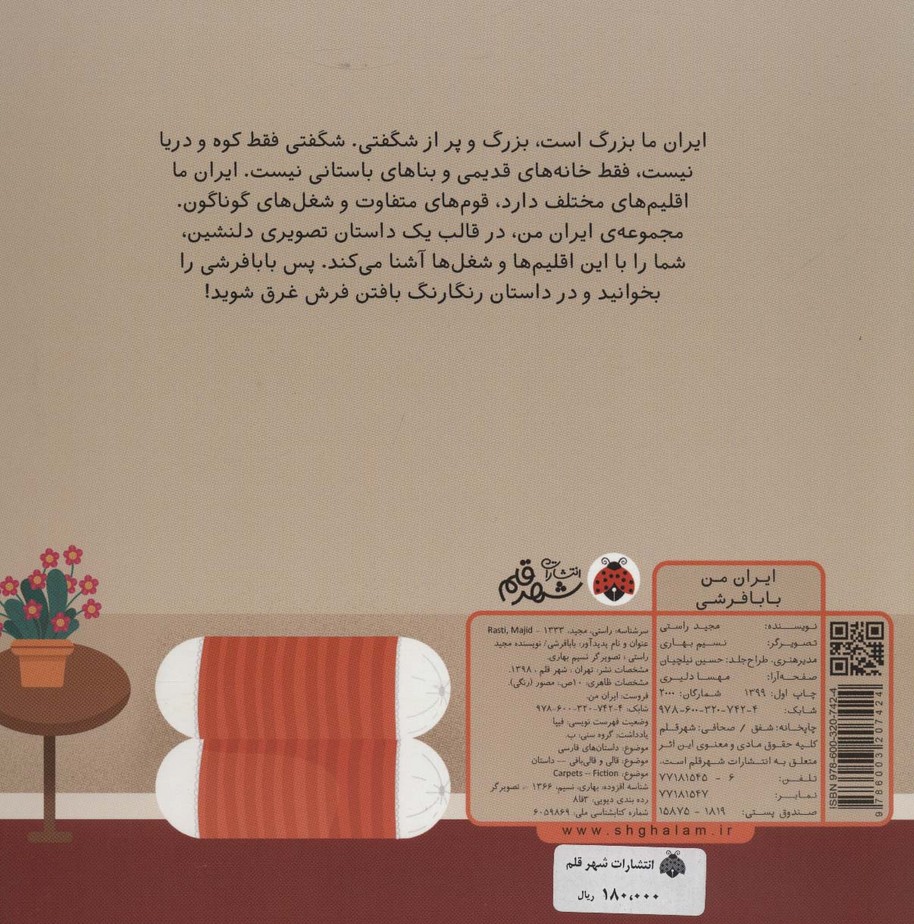 ایران ما بزرگ است، بزرگ و پر از شگفتی. شگفتی فقط کوه و دریا
نیست، فقط خانه‌های قدیمی و بناهای باستانی نیست. ایران ما
اقلیم‌های مختلف دارد، قوم‌های متفاوت و شغل‌های گوناگون.
مجموعه‌ی ایران من، در قالب یک داستان تصویری دلنشین،
شما را با این اقلیم‌ها و شغل‌ها آشنا می‌کند. پس بابافرشی را
بخوانید و در داستان رنگارنگ بافتن فرش غرق شوید!
ایران من
بابافرشی
نویسنده: مجید راستی
تصویرگر: نسیم بهاری
مدیرهنری، طراح‌جلد: حسین نیلچیان
صفحه‌آرا: مهسا دلیری
چاپ اول: ۱۳۹۹ شمارگان: ۲۰۰۰
شابک: ۹۷۸-۶۰۰-۳۲۰-۷۴۲-۴
چاپخانه: شفق / صحافی: شهرقلم
کلیه حقوق مادی و معنوی این اثر
متعلق به انتشارات شهرقلم است.
تلفن: ۶ - ۷۷۱۸۱۵۴۵
نمابر: ۷۷۱۸۱۵۴۷
صندوق پستی: ۱۸۱۹ - ۱۵۸۷۵
ISBN 978-600-320-742-4
9 786003 207424
انتشارات
شهر قلم
سرشناسه: راستی، مجید، ۱۳۳۳ - Rasti, Majid
عنوان و نام پدیدآور: بابافرشی/ نویسنده مجید
راستی ؛ تصویرگر نسیم بهاری.
مشخصات نشر: تهران : شهر قلم ، ۱۳۹۸.
مشخصات ظاهری: ۱۰ص.: مصور (رنگی).
فروست: ایران من.
شابک: ۹۷۸-۶۰۰-۳۲۰-۷۴۲-۴
وضعیت فهرست نویسی: فیپا
یادداشت: گروه سنی: ب.
موضوع: داستان‌های فارسی
موضوع: قالی و قالی‌بافی -- داستان
موضوع: Carpets -- Fiction
شناسه افزوده: بهاری، نسیم، ۱۳۶۶ -، تصویرگر
رده بندی دیویی: ۸فا۳
شماره کتابشناسی ملی: ۶۰۵۹۸۶۹
www.shghalam.ir
انتشارات شهر قلم
۱۸۰،۰۰۰ ریال